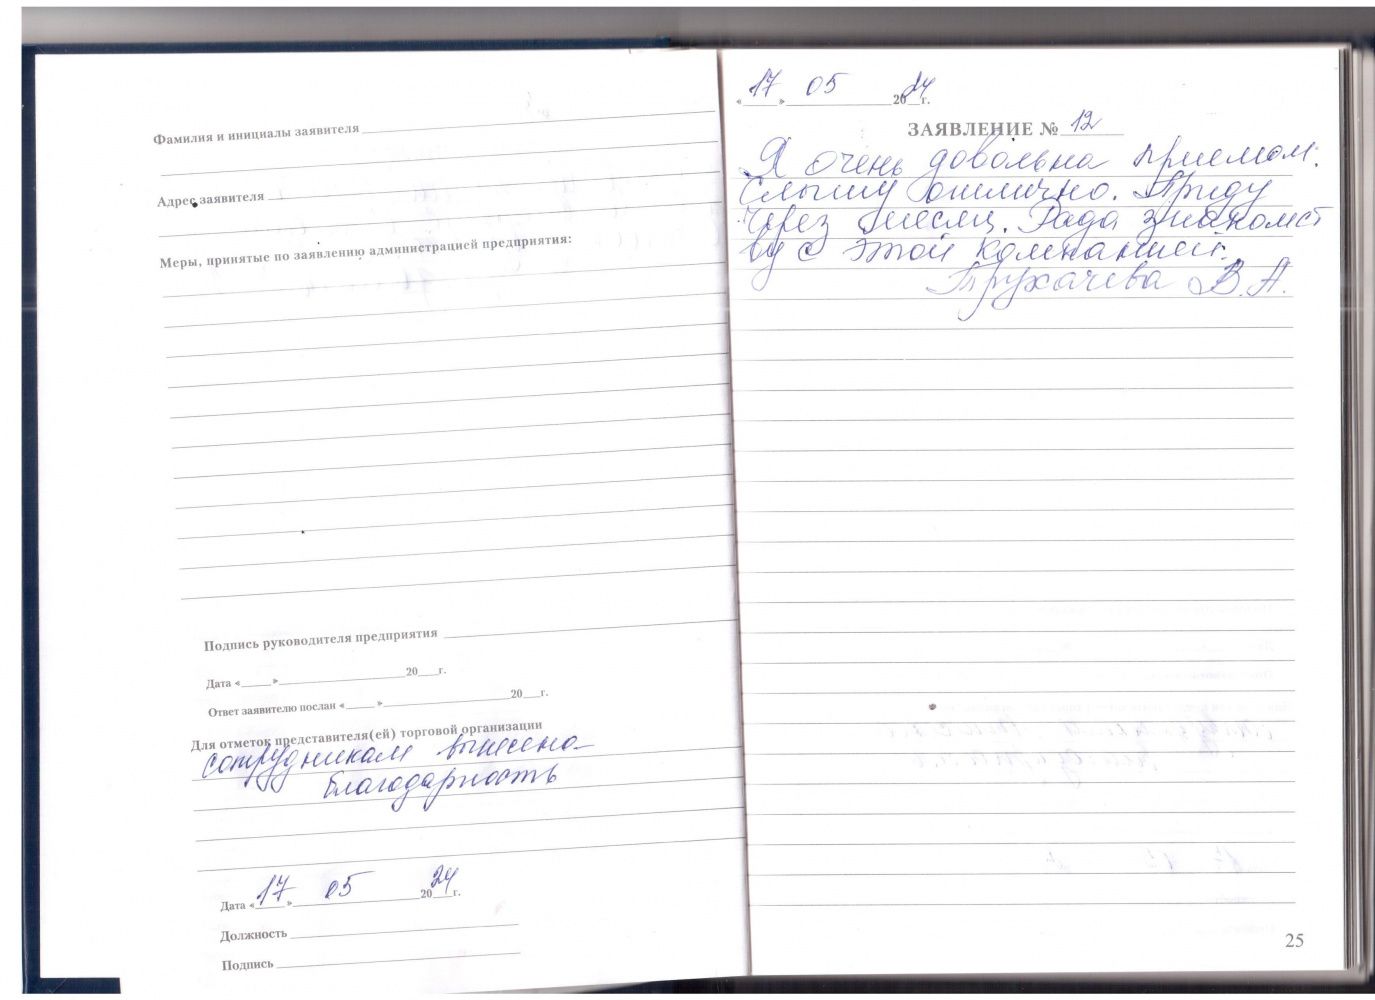 Фамилия и инициалы заявителя
Адрес заявителя
Меры, принятые по заявлению администрацией предприятия:
Подпись руководителя предприятия
Дата «____»____20__г.
Ответ заявителю послан «____»____20__г.
Для отметок представителя(ей) торговой организации
сотрудникам вынесена
благодарность
Дата «17» 05 2024г.
Должность
Подпись
«17» 05 2024г.
ЗАЯВЛЕНИЕ № 12
Я очень довольна приемом.
Слышу отлично. Приду
через месяц. Рада знакомст
ву с этой компанией.
Трухачева В.А.
25